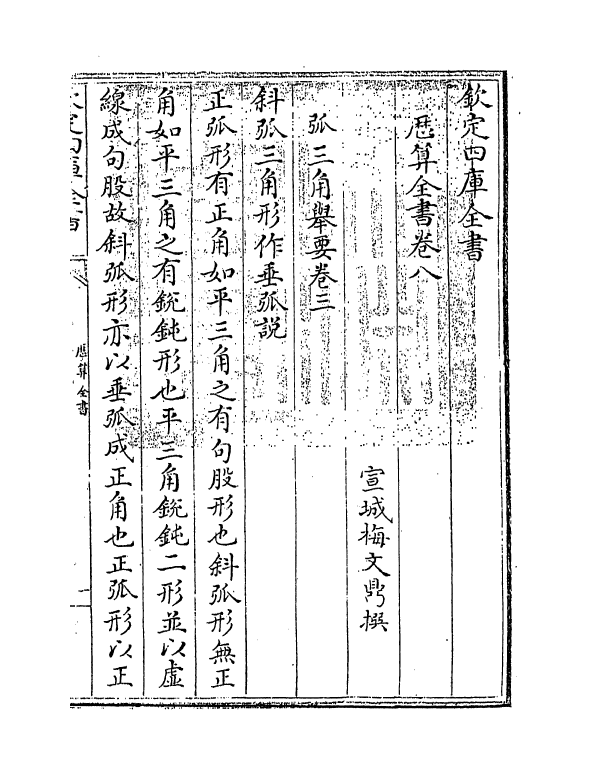 欽定四庫全書
厯算全書卷八
宣城梅文鼎撰
弧三角舉要卷三
斜弧三角形作垂弧說
正弧形有正角如平三角之有句股形也斜弧形無正
角如平三角之有銳鈍形也平三角銳鈍二形並以虛
線成句股故斜弧形亦以垂弧成正角也正弧形以正
欽定四庫全書
厯算全書
一